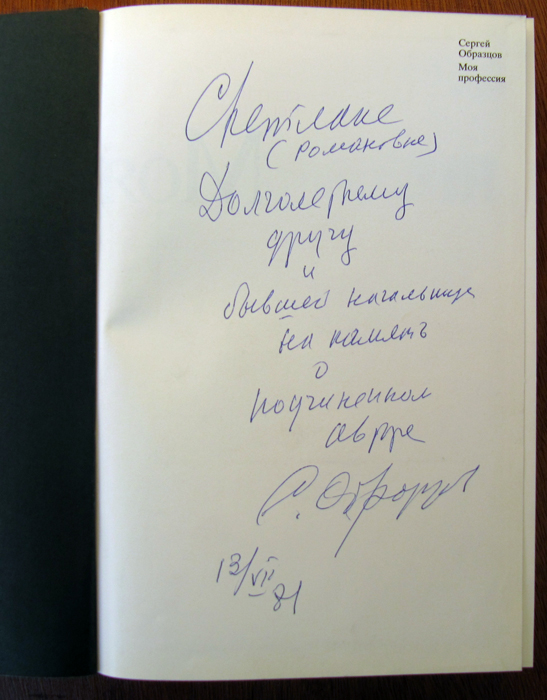 Сергей
Образцов
Моя
профессия
Светлане
(Романовне)
Долголетнему
другу
и
бывшей начальнице
на память
о
подчиненном
авторе
С. Образцов
13/VII 81